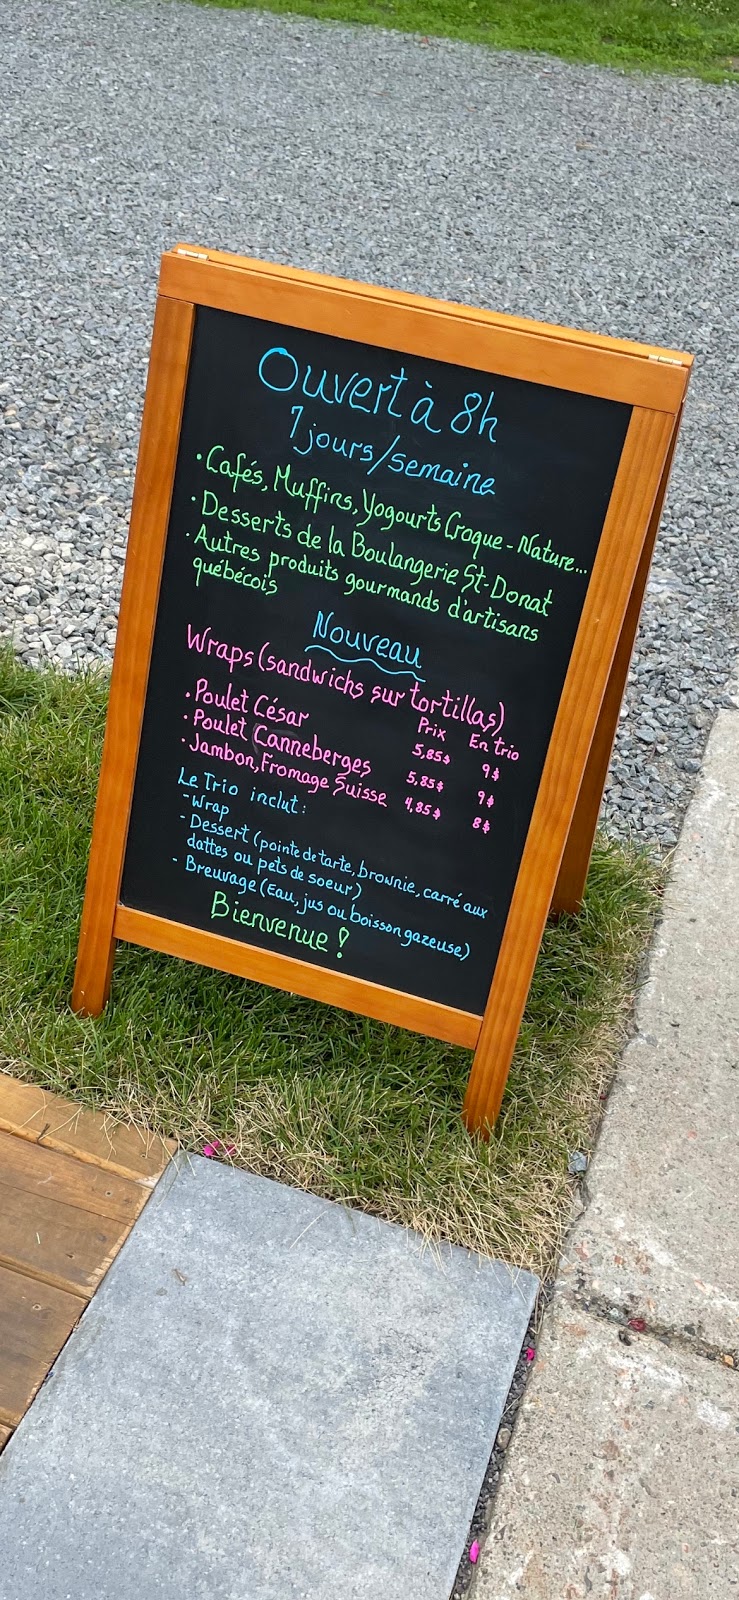 Ouvert à 8h
7 jours/semaine
• Cafés, Muffins, Yogourts Croque-Nature...
• Desserts de la Boulangerie St-Donat
• Autres produits gourmands d'artisans
québécois
Nouveau
Wraps (sandwichs sur tortillas)
Prix En trio
• Poulet César 5,85$ 9$
• Poulet Canneberges 5,85$ 9$
• Jambon, Fromage Suisse 4,85$ 8$
Le Trio inclut :
- Wrap
- Dessert (pointe de tarte, brownie, carré aux
dattes ou pets de soeur)
- Breuvage (Eau, jus ou boisson gazeuse)
Bienvenue !